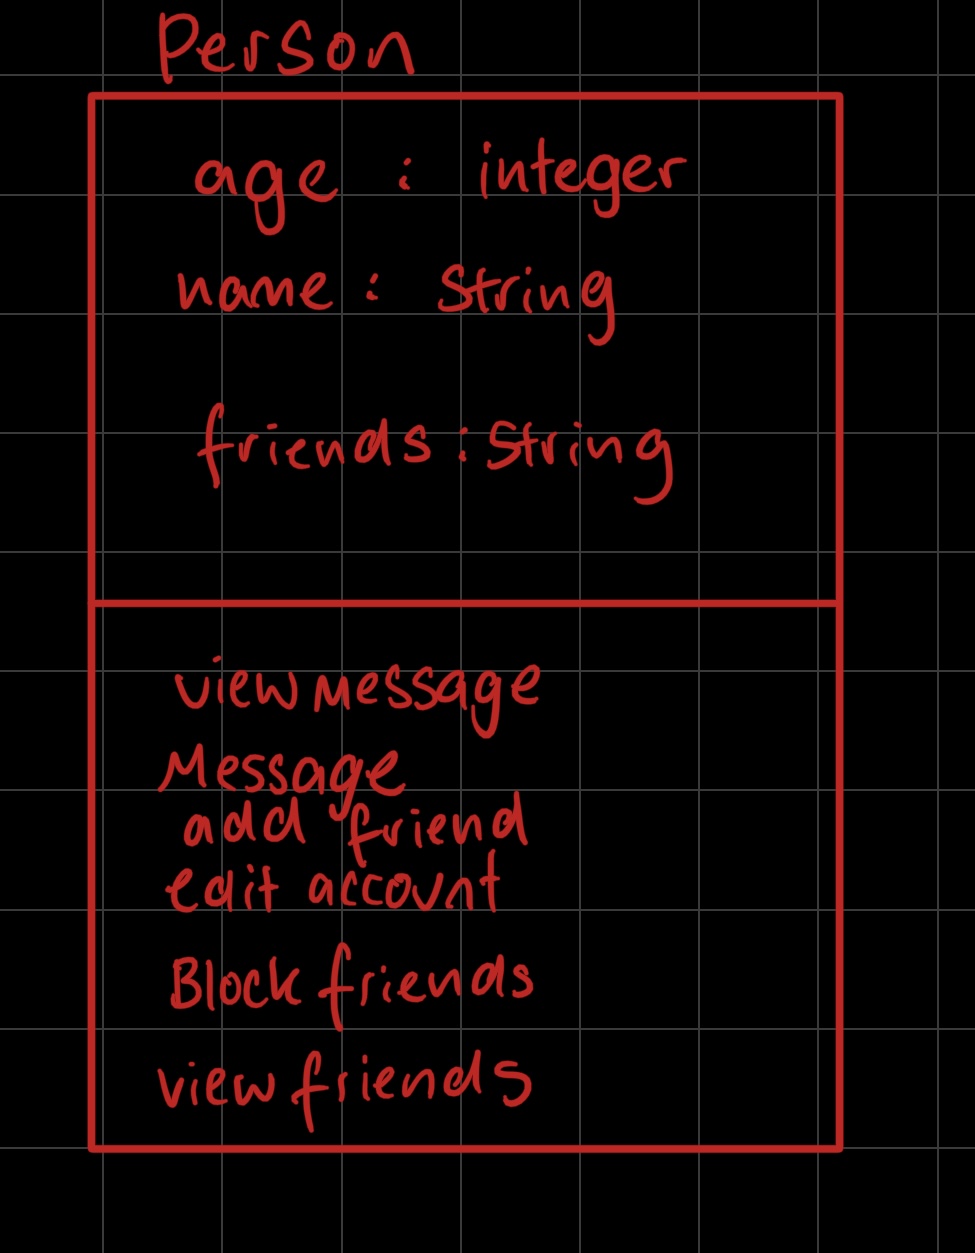 Person
age : integer
name : String
friends : String
view Message
Message
add friend
edit account
Block friends
view friends